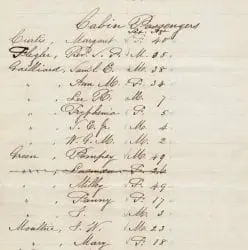 Cabin Passengers
Sex Age
Curtis, Margaret F. 45
Flegler, Rev. S. F. M. 45
Gailliard, Saml E. M. 38
" Ann M. F. 34
" Lee R. M. 7
" Tryphenia F. 5
" S. E. Jr. M. 4
" W. G. M. M. 2
Green, Pompey M. 49
" F. 24
" Milly F. 49
" Fanny F. 17
" S. M. 3
Moultrie, S. W. M. 23
" Mary F. 18